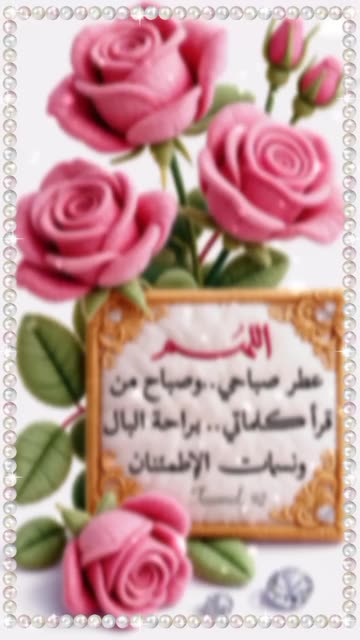 اللهم
عطر صباحي..وصباح من
قرأ كلماتي.. براحة البال
ونسمات الإطمئنان